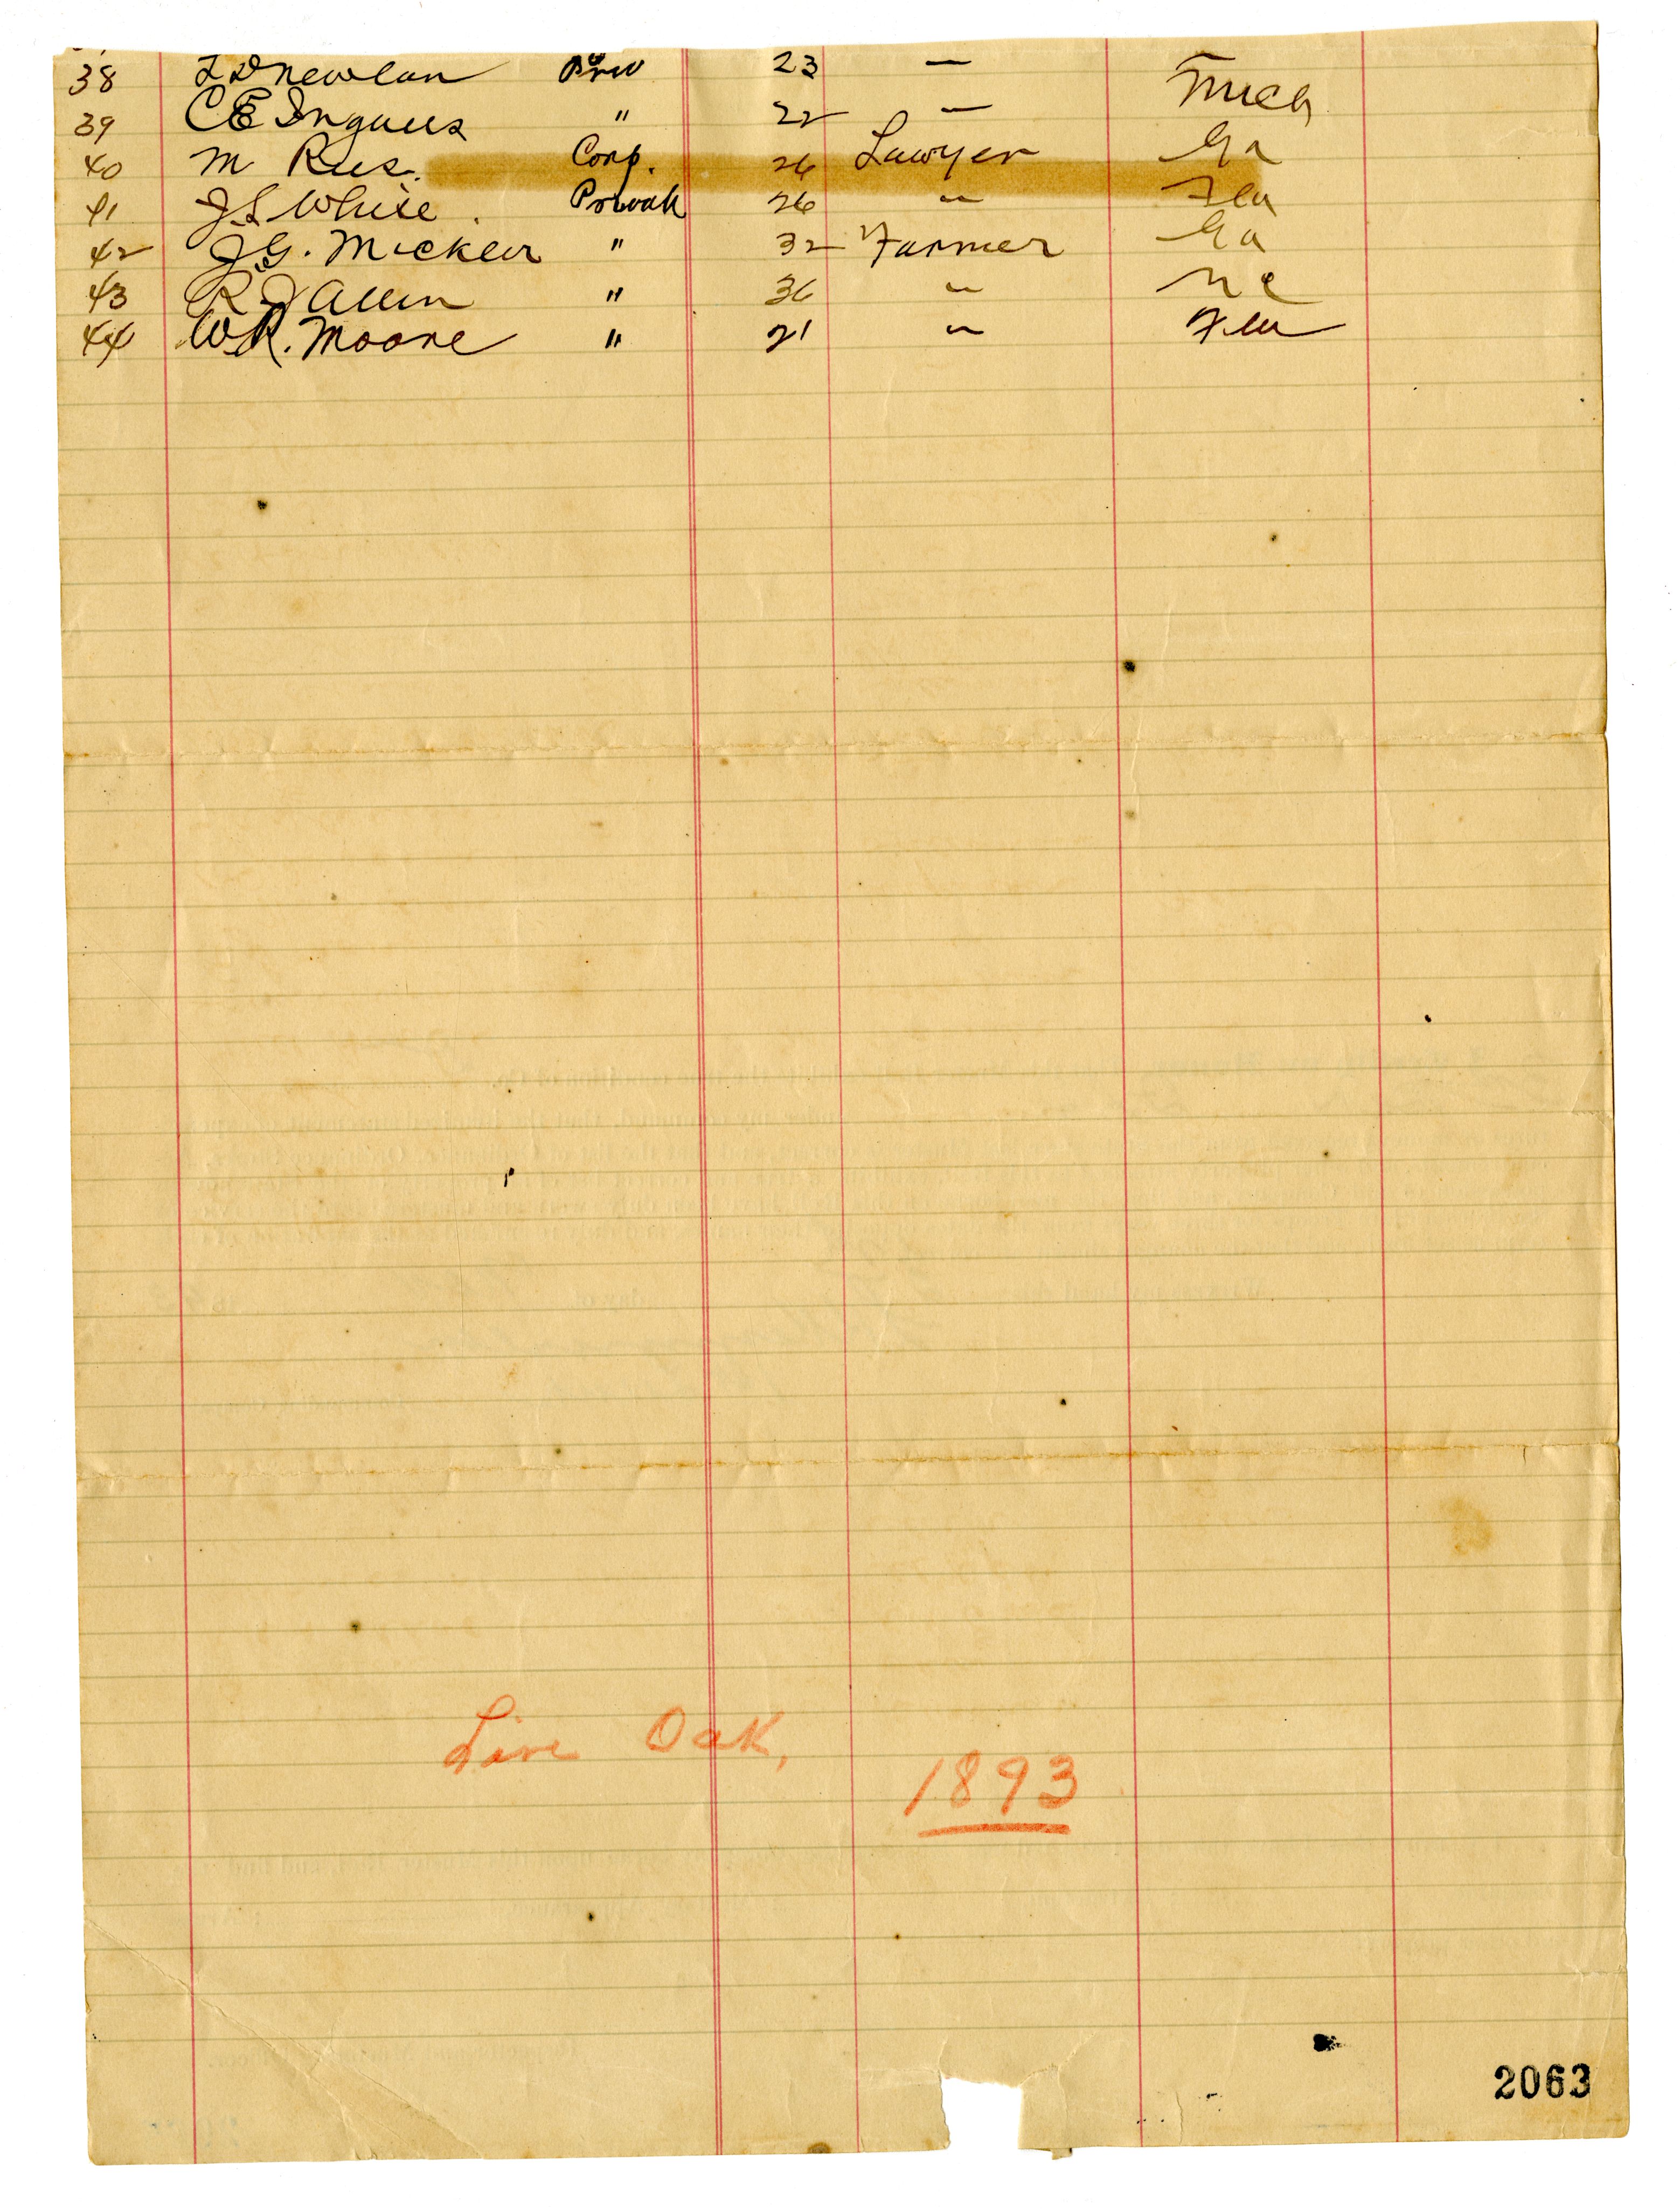 38 L D Newlan Priv 23 — Mich
39 C E Inguus " 22 —
40 M Rus. Corp. 26 Lawyer Ga
41 J. L White. Privak 26 " Fla
42 J. G. Mickler " 32 Farmer Ga
43 R J Allen " 36 " N C
44 W. R. Moore " 21 " Fla
Live Oak,
1893
2063